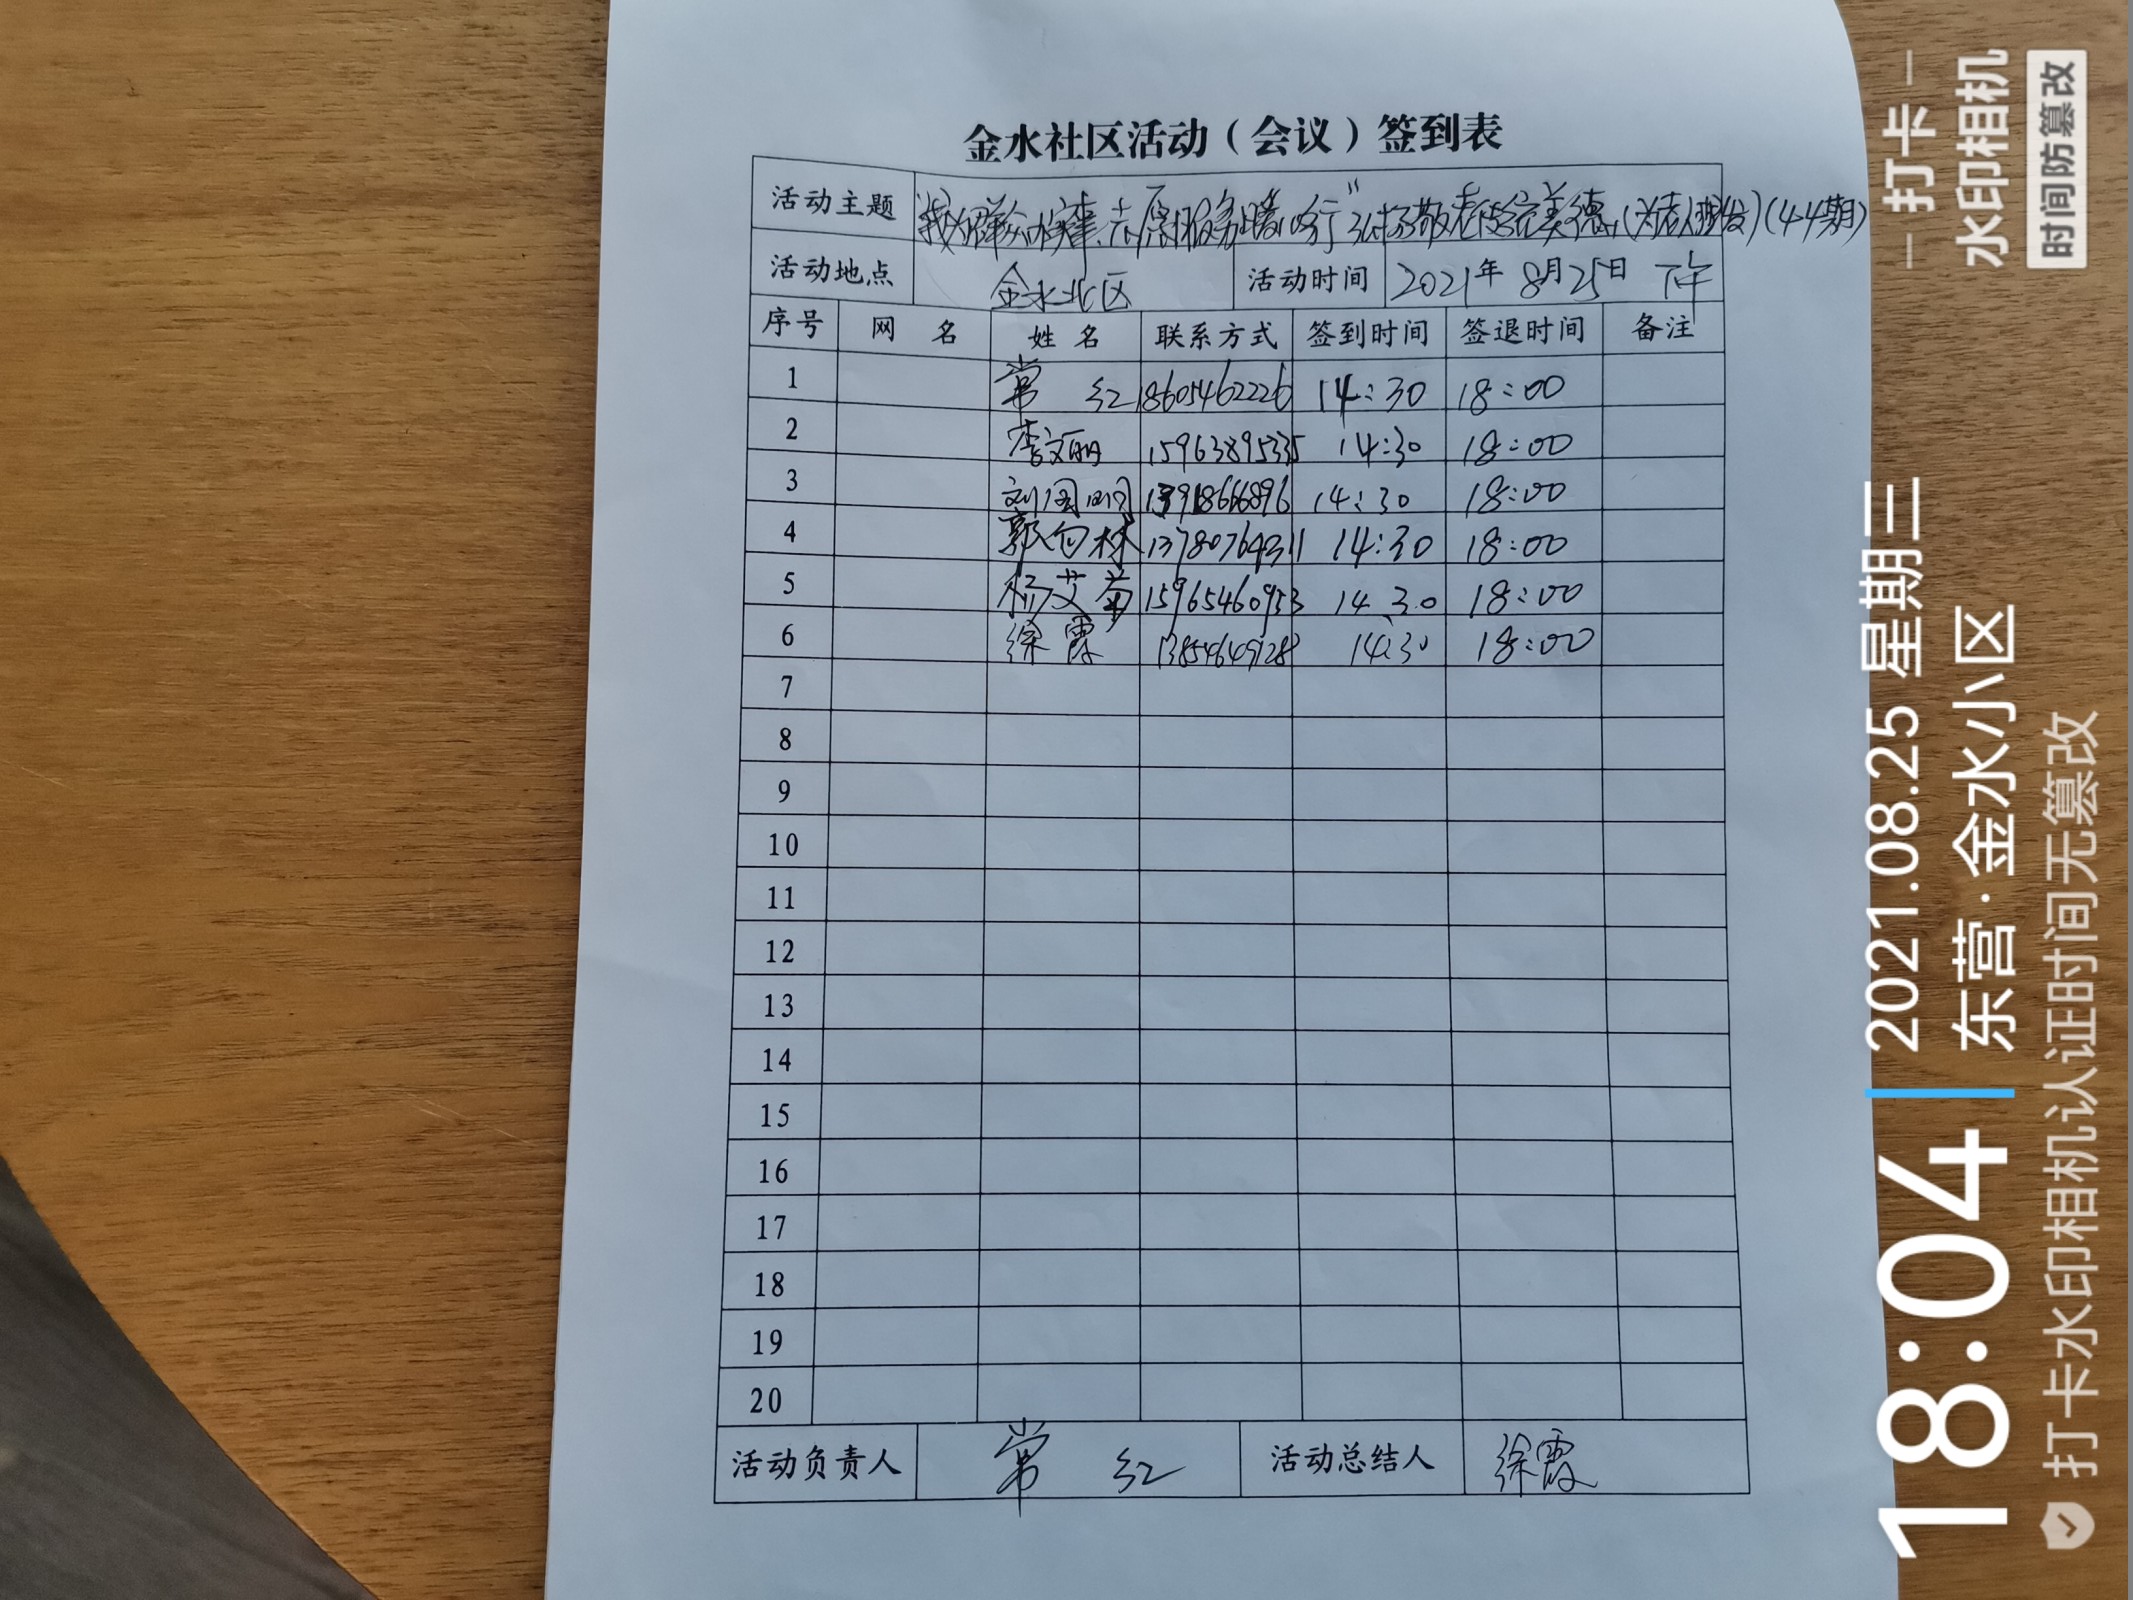 金水社区活动（会议）签到表
活动主题 "我为群众办实事，志愿服务暖心行" 弘扬敬老传统美德（为老人理发）(44期)
活动地点 金水北区 活动时间 2021年8月25日 下午
序号 网 名 姓 名 联系方式 签到时间 签退时间 备注
1 常 红 18605462226 14:30 18:00
2 李文丽 15963895335 14:30 18:00
3 刘 14:30 18:00
4 郭 林 13780764311 14:30 18:00
5 杨艾菊 15965460953 14 30 18:00
6 徐霞 13854649128 14:30 18:00
7
8
9
10
11
12
13
14
15
16
17
18
19
20
活动负责人 常 红 活动总结人 徐霞
打卡
水印相机
时间防篡改
18:04
2021.08.25 星期三
东营·金水小区
打卡水印相机认证时间无篡改